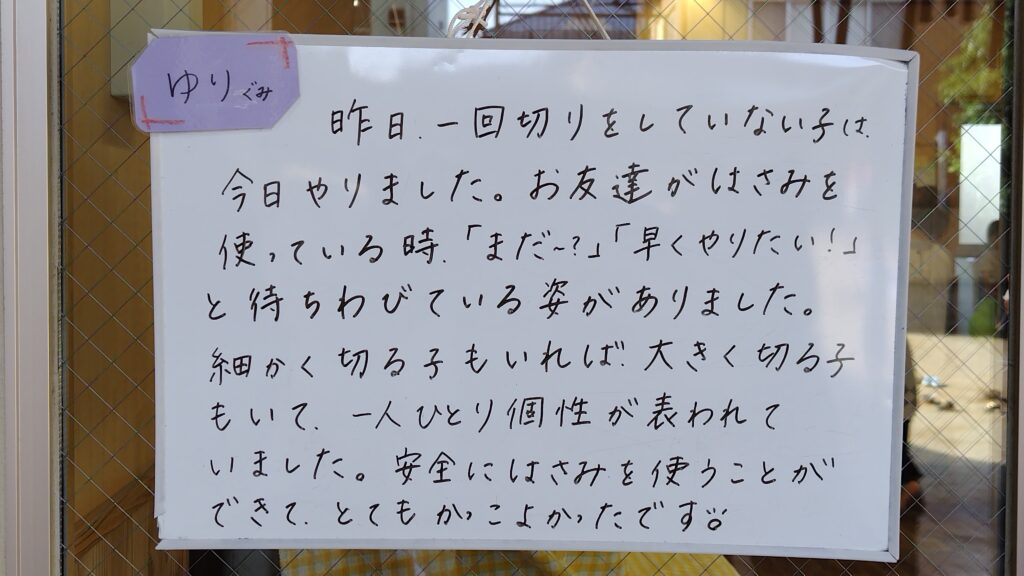 ゆりぐみ
昨日、一回切りをしていない子は、
今日やりました。お友達がはさみを
使っている時、「まだ~?」「早くやりたい!」
と待ちわびている姿がありました。
細かく切る子もいれば、大きく切る子
もいて、一人ひとり個性が表われて
いました。安全にはさみを使うことが
できて、とてもかっこよかったです